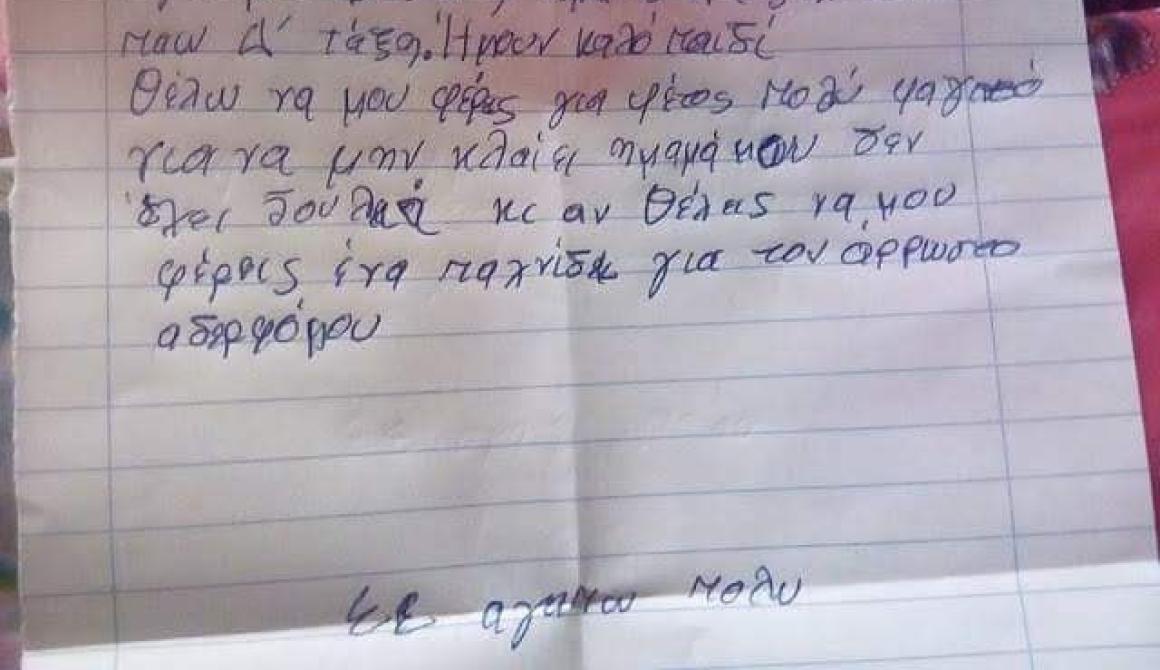 παω Δ' τάξη. Ήμουν καλό παιδί
Θέλω να μου φέρεις για φέτος πολύ φαγητό
για να μην κλαίει ημαμά μου δεν
έχει δουλειά κι αν θέλεις να μου
φέρεις ένα παχνίδι για τον άρρωστο
αδερφόμου
ΣΕ αγαπαω πολυ